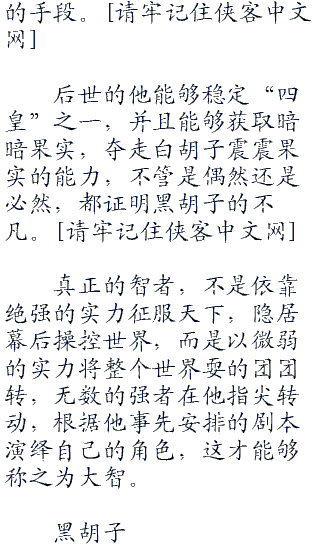 的手段。[请牢记住侠客中文
网]
后世的他能够稳定“四
皇”之一，并且能够获取暗
暗果实，夺走白胡子震震果
实的能力，不管是偶然还是
必然，都证明黑胡子的不
凡。[请牢记住侠客中文网]
真正的智者，不是依靠
绝强的实力征服天下，隐居
幕后操控世界，而是以微弱
的实力将整个世界耍的团团
转，无数的强者在他指尖转
动，根据他事先安排的剧本
演绎自己的角色，这才能够
称之为大智。
黑胡子